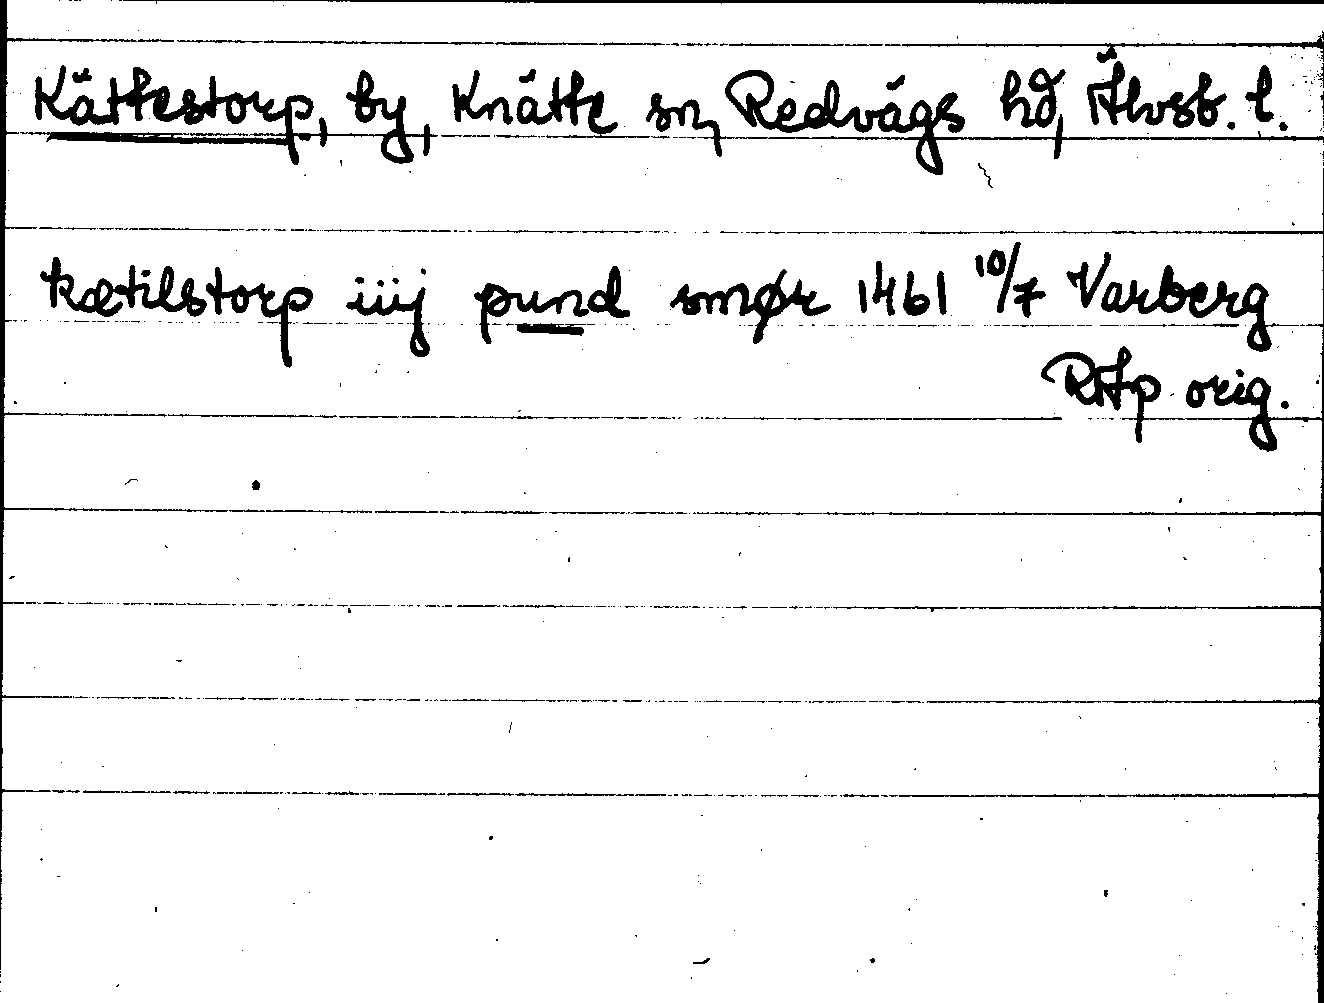 Kättestorp, by, Knätte sn, Redvägs hd, Älvsb. l.
kætilstorp iiij pund smør 1461 10/7 Varberg
RAp orig.